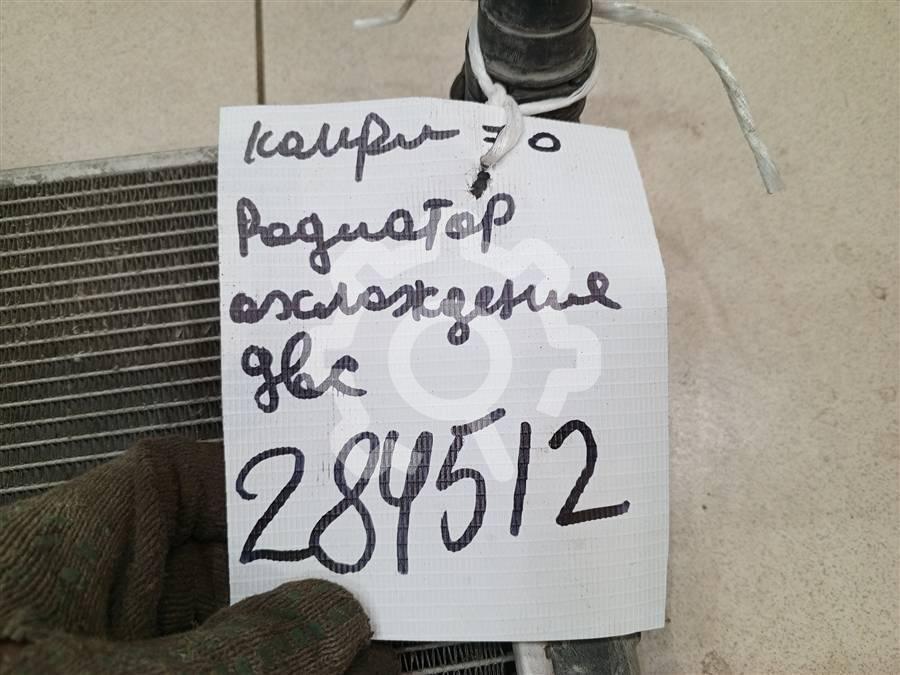 камри
Радиатор
охлаждение
двс
284512